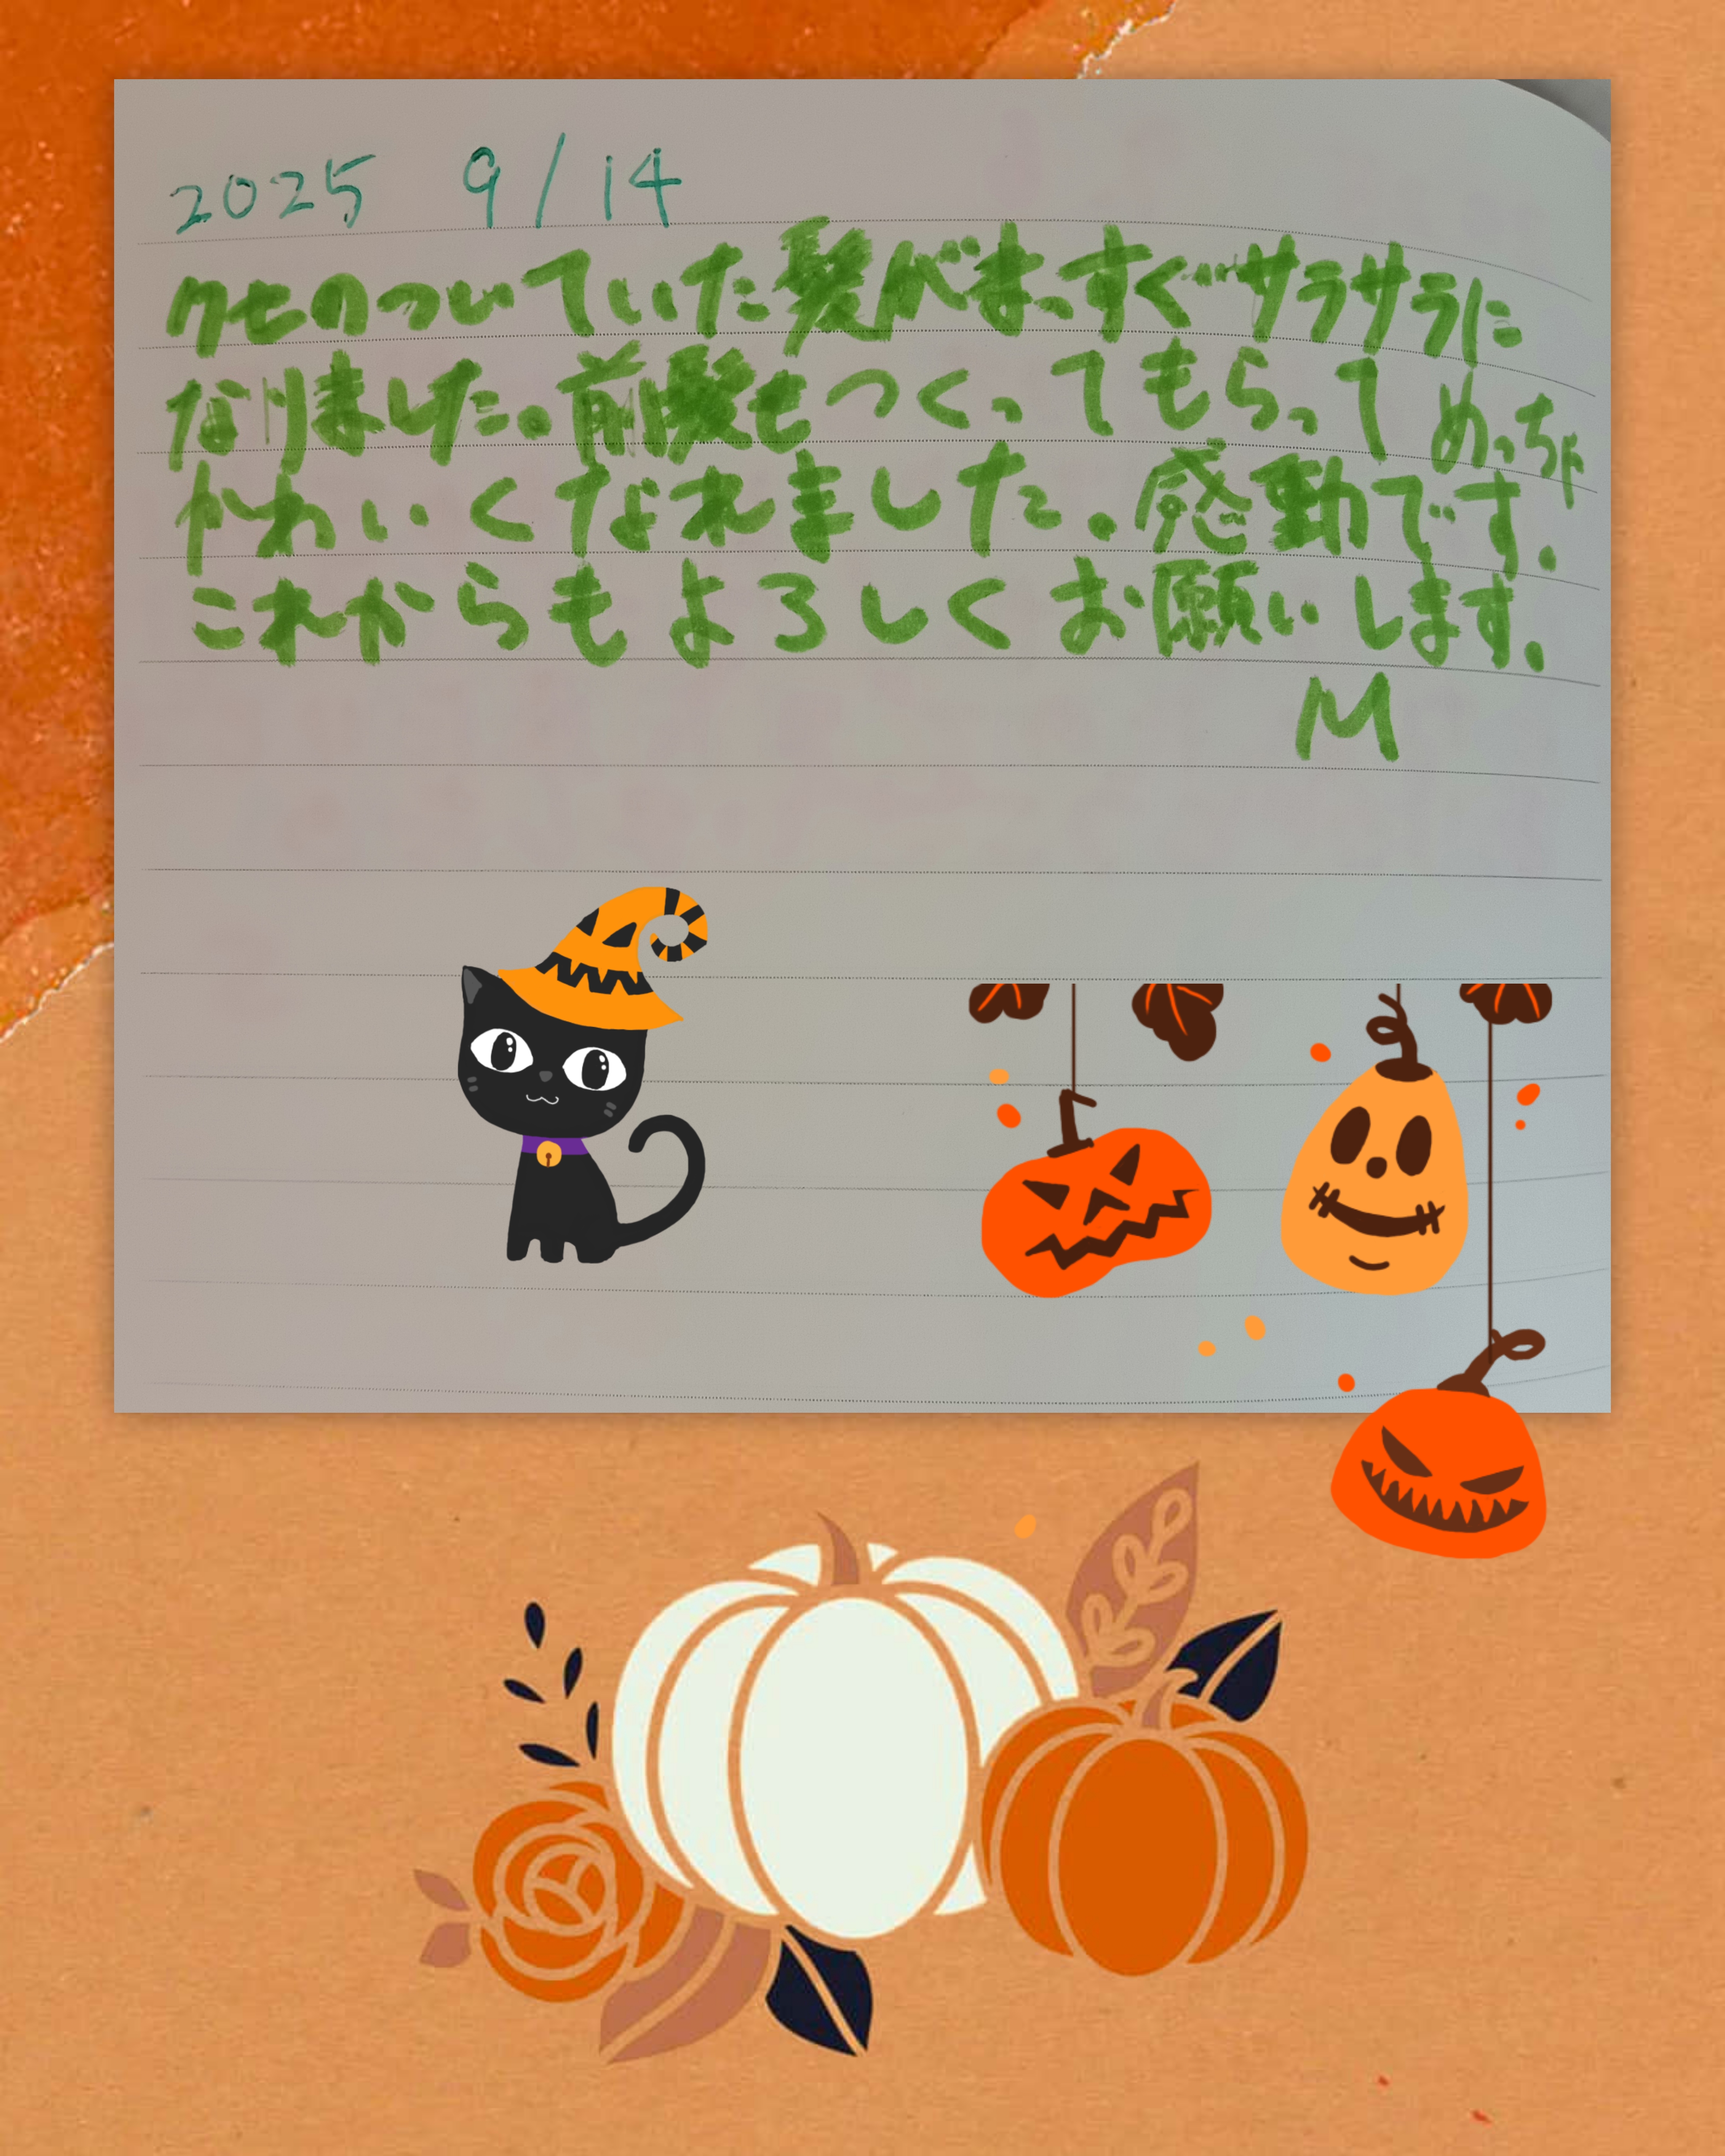 2025 9/14
クセのついていた髪がまっすぐサラサラに
なりました。前髪もつくってもらってめっちゃ
かわいくなれました。感動です.
これからもよろしくお願いします.
M